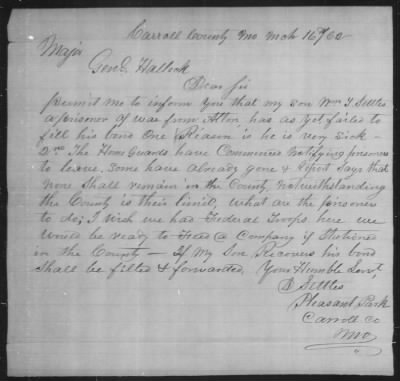 Carroll County Mo Mch 16th/62
Major
Genl Halleck
Dear Sir
permit me to inform you that my son Wm T. Settles
a prisoner of war from Alton has as yet failed to
fill his bond One Reason is he is very sick -
2nd. The Home Guards have Commenced Notifying prisoners
to leave, some have already gone & report says that
none shall remain in the County notwithstanding
the County is their limit, what are the prisoner
to do; I wish we had Federal Troops here we
would be ready to Feed a Company if Stationed
in the County — If my Son Recovers his bond
shall be filled & forwarded, Your Humble Servt,
D Settles
Pleasant Park
Carroll Co
Mo